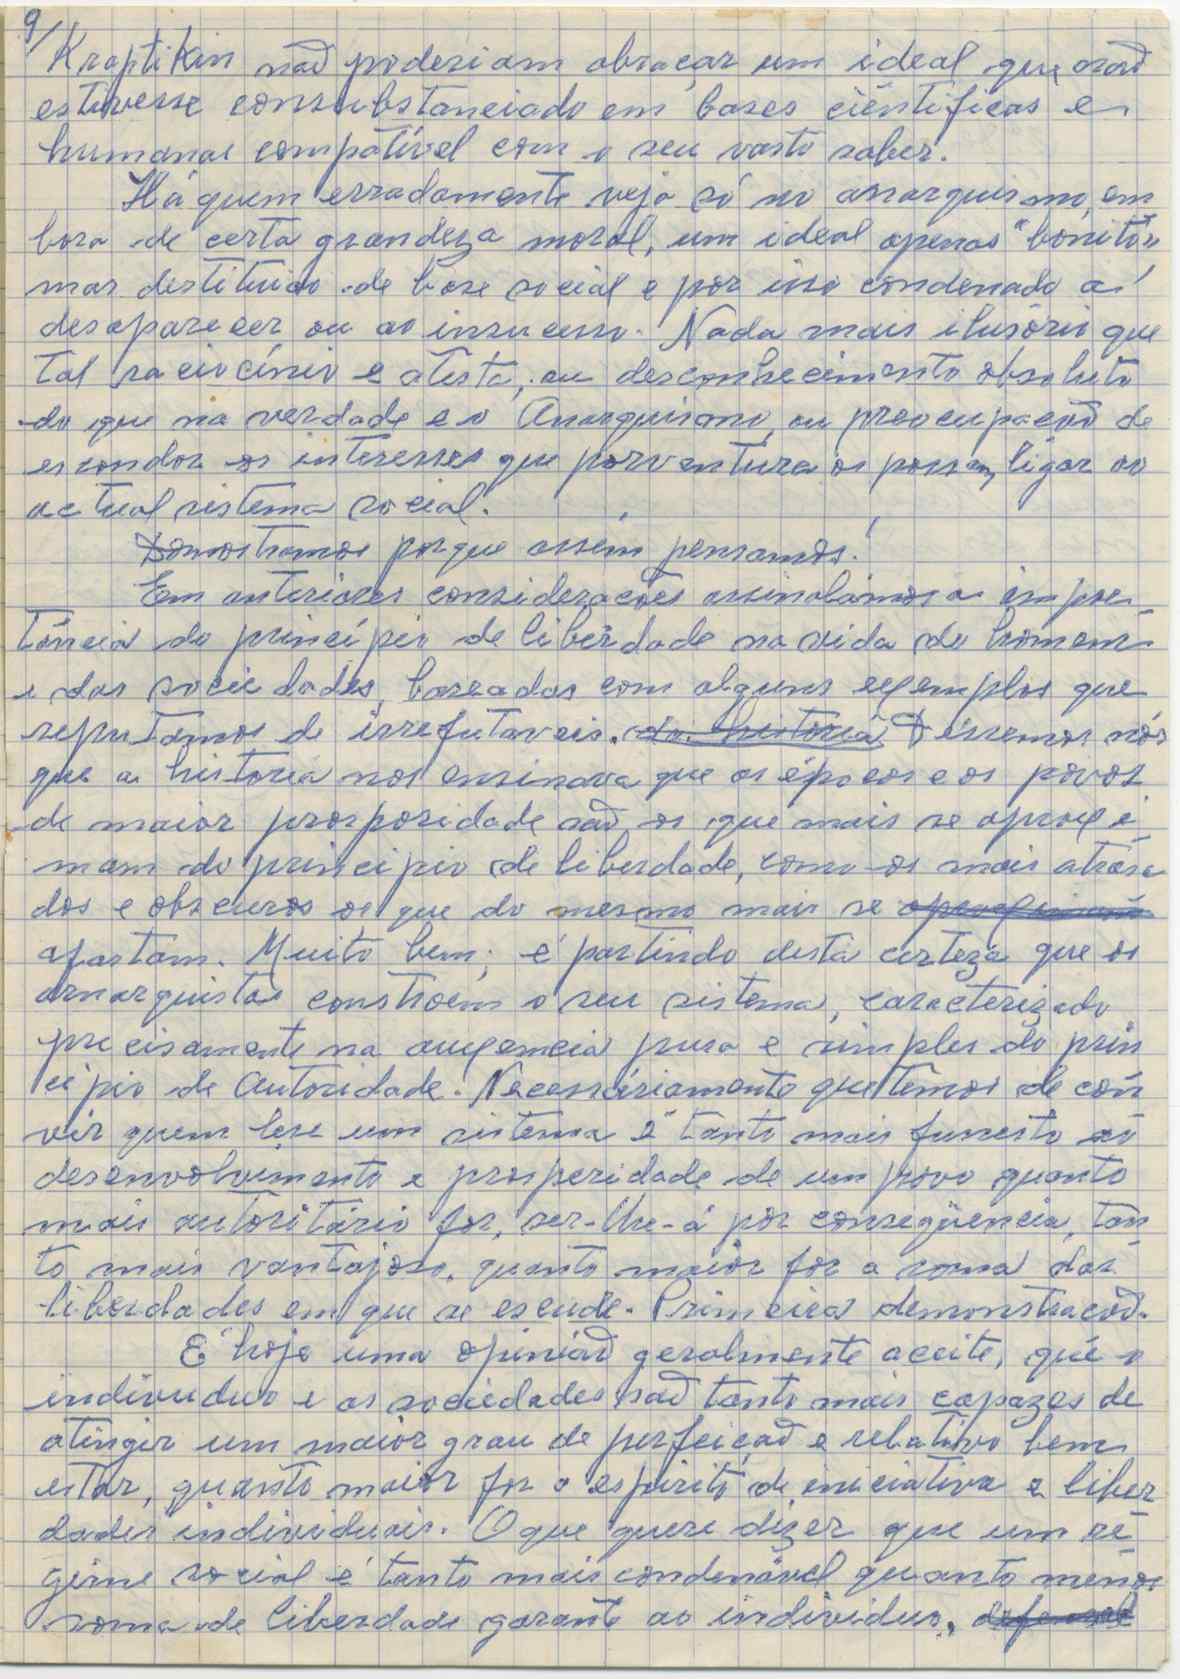 9/
Kroptikin não poderiam abraçar um ideal que não
estivesse consubstanciado em bases ciêntificas e
humanas compatível com o seu vasto saber.
Há quem erradamente veja só no anarquismo, em
bora de certa grandeza moral, um ideal apenas "bonito"
mas destituido de base social e por isso condenado a
desaparecer ou ao insucesso. Nada mais ilusório que
tal raciocínio e atesta, ou desconhecimento absoluto
do que na verdade e o Anarquismo, ou preocupação de
esconder os interesses que porventura os possam ligar ao
actual sistema social.
Demostramos porque assim pensamos.
Em anteriores considerações assinalámos a impor
tância do princípio de liberdade na vida do homem
e das sociedades, baseadas com alguns exemplos que
reputamos de irrefutaveis. da historia Dissemos nós
que a historia nos ensinava que as épocas e os povos
de maior prosporidade são os que mais se aproxi
mam do principio de liberdade, como os mais atrasa
dos e obscuros os que do mesmo mais se aproximam
afastam. Muito bem; é partindo desta certeza que os
anarquistas constroem o seu sistema, caracterizado
precisamente na auxencia pura e simples do prin
cipio de Autoridade. Necessáriamente que temos de con
vir quem se um sistema é tanto mais funesto ao
desenvolvimento e prosperidade de um povo quanto
mais autoritário for, ser-lhe-á por conseqüencia, tan
to mais vantajoso, quanto maior for a soma das
liberdades em que se escude. Primeira demonstração.
É hoje uma opinião geralmente aceite, que o
individuo e as sociedades são tanto mais capazes de
atingir um maior grau de perfeição e relativo bem
estar, quanto maior for o espirito de iniciativa e liber
dades individuais. O que quere dizer que um ré
gime social é tanto mais condenável quanto menos
soma de liberdade garante ao individuo,